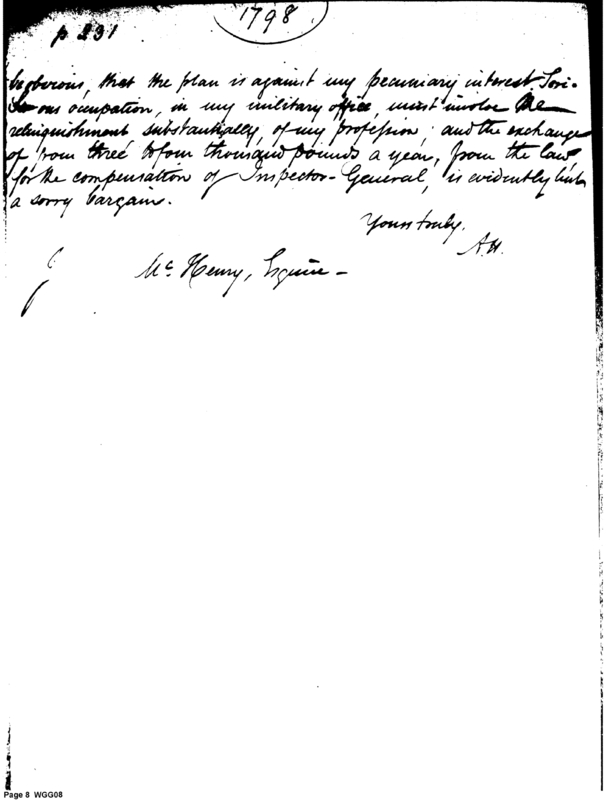 p 231
1798
be obvious, that the plan is against my pecuniary interest Seri-
ous occupation, in my military office, must involve the
relinquishment substantially, of my profession; and the exchange
of from three to four thousand pounds a year, from the law,
for the compensation of Inspector-General, is evidently but
a sorry bargain.
Yours truly.
A.H.
J McHenry, Esquire –
Page 8 WGG08